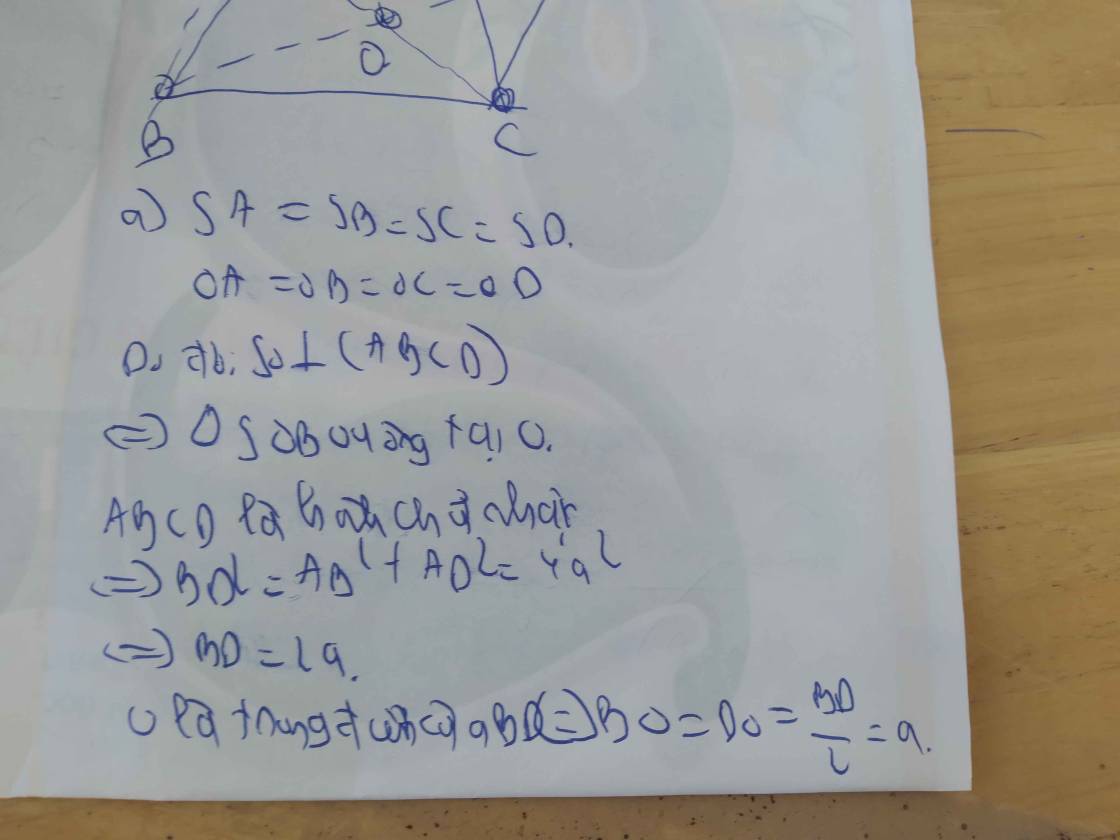 O
B
C
a) SA = SB = SC = SD.
OA = OB = OC = OD
Do đó: SO ⊥ (ABCD)
⇔ Δ SOB vuông tại O.
ABCD là hình chữ nhật
⇔ BD² = AB² + AD² = 4a²
⇔ BD = 2a.
O là trung điểm của BD ⇔ BO = DO = BD/2 = a.